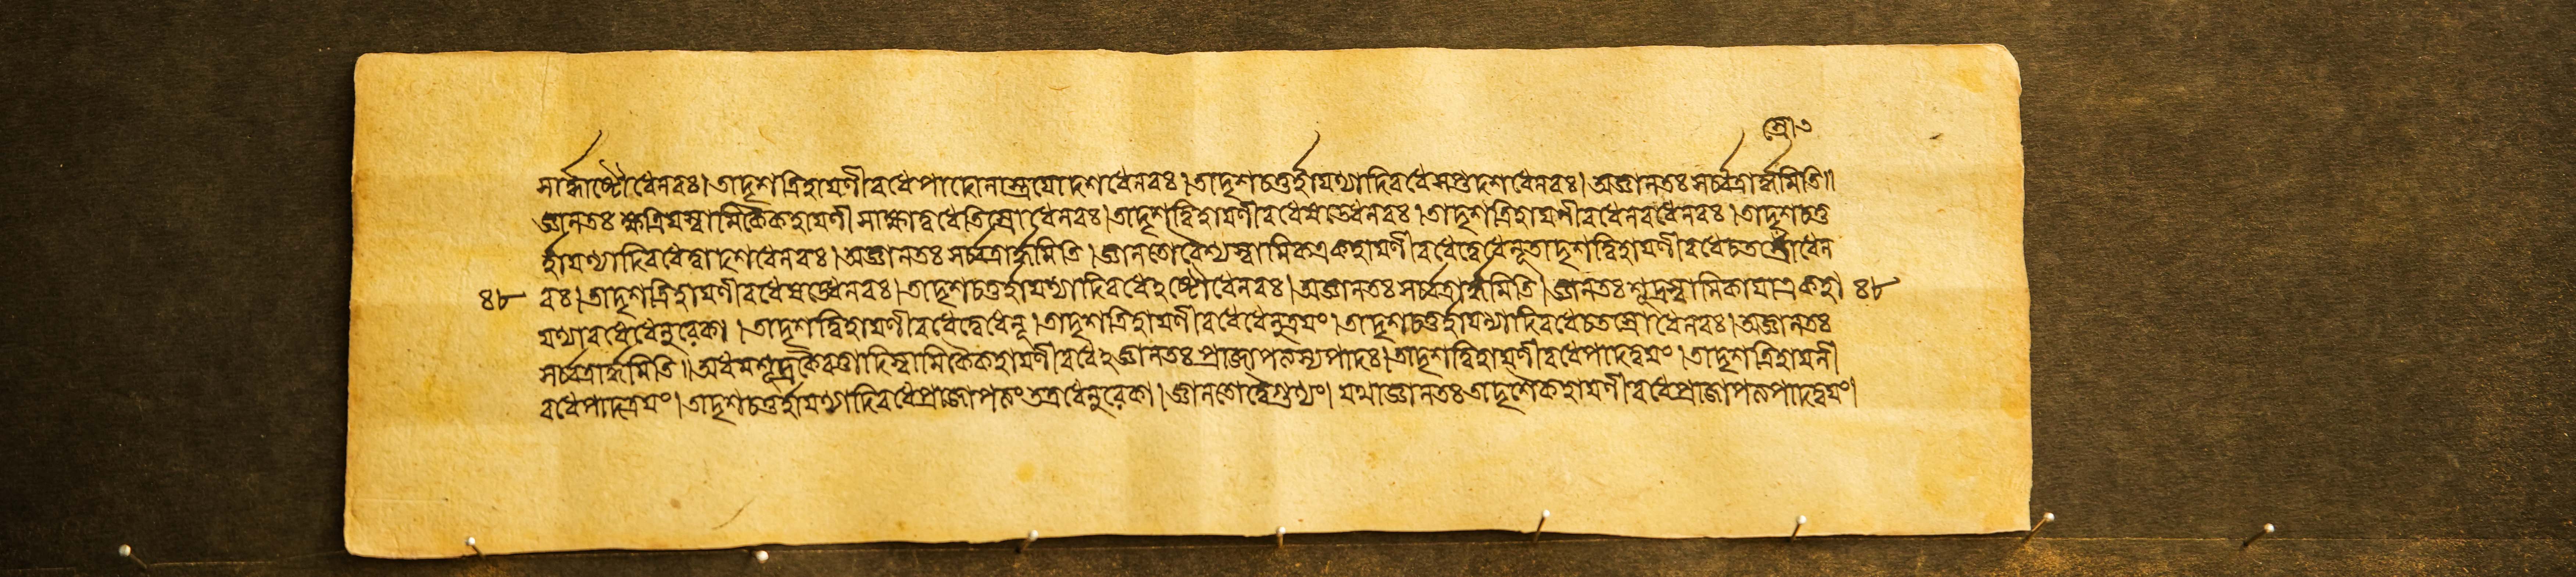 স্রো৩
সার্দ্ধাষ্টৌধেনবঃ।তাদৃশত্রিহায়ণীবধেপাদোনাস্ত্রয়োদশধেনবঃ।তাদৃশচতুর্হায়ণ্যাদিবধেসপ্তদশধেনবঃ।অজ্ঞানতঃসর্ব্বত্রার্দ্ধমিতি॥
জ্ঞানতঃক্ষত্রিয়স্বামিকৈকহায়ণী ধেনবঃ।তাদৃশদ্বিহায়ণীবধেষড্ধেনবঃ।তাদৃশত্রিহায়ণীবধেনবধেনবঃ।তাদৃশচতু
র্হায়ণ্যাদিবধেদ্বাদশধেনবঃ।অজ্ঞানতঃসর্ব্বত্রার্দ্ধমিতি।জ্ঞানতোবৈশ্যস্বামিকএকহায়ণীবধেদ্বেধেনূতাদৃশদ্বিহায়ণীবধেচতস্রোধেন
৪৮ বঃ।তাদৃশত্রিহায়ণীবধেষড্ধেনবঃ।তাদৃশচতুর্হায়ণ্যাদিবধেঽষ্টৌধেনবঃ।অজ্ঞানতঃসর্ব্বত্রার্দ্ধমিতি।জ্ঞানতঃশূদ্রস্বামিকায়াএকহা ৪৮
য়ণ্যাবধেধেনুরেকা।তাদৃশদ্বিহায়ণীবধেদ্বেধেনূ।তাদৃশত্রিহায়ণীবধেধেনুত্রয়ং।তাদৃশচতুর্হায়ণ্যাদিবধেচতস্রোধেনবঃ।অজ্ঞানতঃ
সর্ব্বত্রার্দ্ধমিতি॥অধমশূদ্র হায়ণীবধেঽজ্ঞানতঃপ্রাজাপত্যস্যপাদঃ।তাদৃশদ্বিহায়ণীবধেপাদদ্বয়ং।তাদৃশত্রিহায়ণী
বধেপাদত্রয়ং।তাদৃশচতুর্হায়ণ্যাদিবধেপ্রাজাপত্যংতত্রধেনুরেকা।জ্ঞানতোদ্বৈগুণ্যং। তাদৃশৈকহায়ণীবধেপ্রাজাপত্যপাদদ্বয়ং।